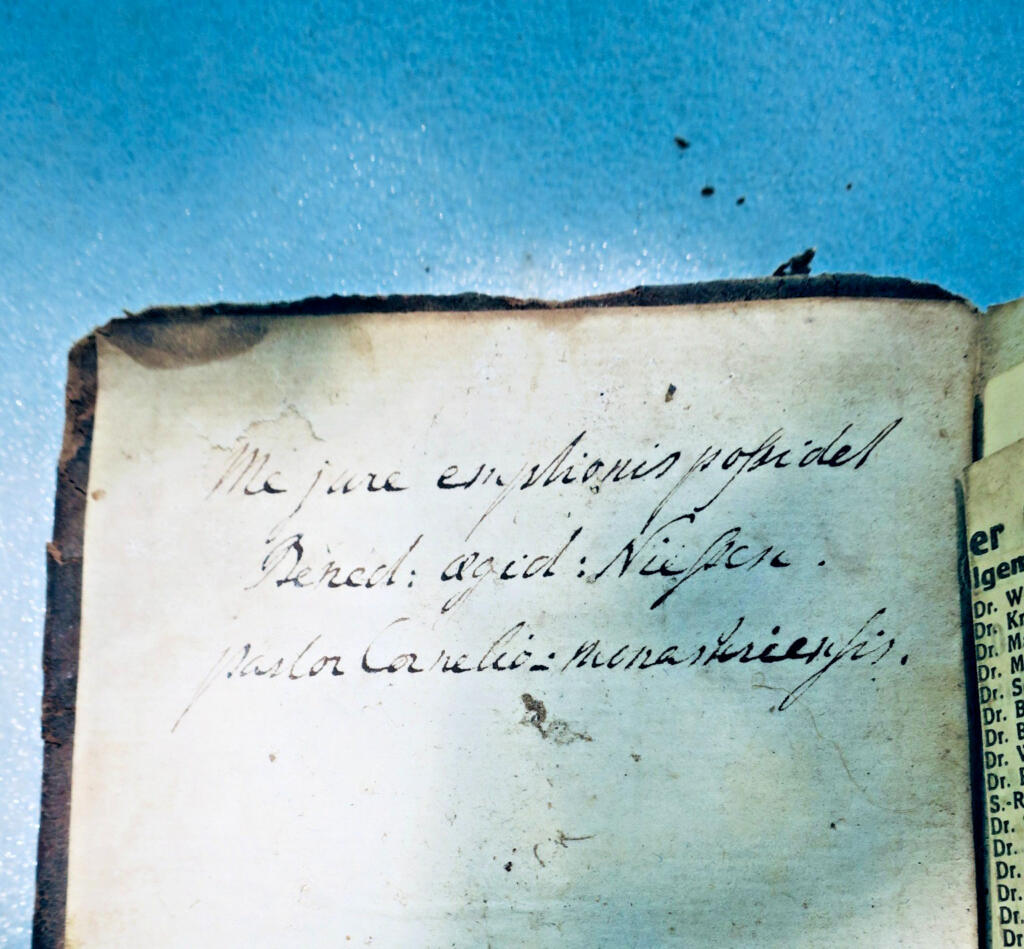 Me jure emptionis possidet
Bened: ægid: Niessen.
pastor Cornelio-monasteriensis.
er
lgem
Dr. W
Dr. Kr
Dr. M
Dr. M
Dr. S
Dr. B
Dr. B
Dr. V
Dr.
S.-R
Dr.
Dr.
Dr.
Dr.
Dr.
Dr.